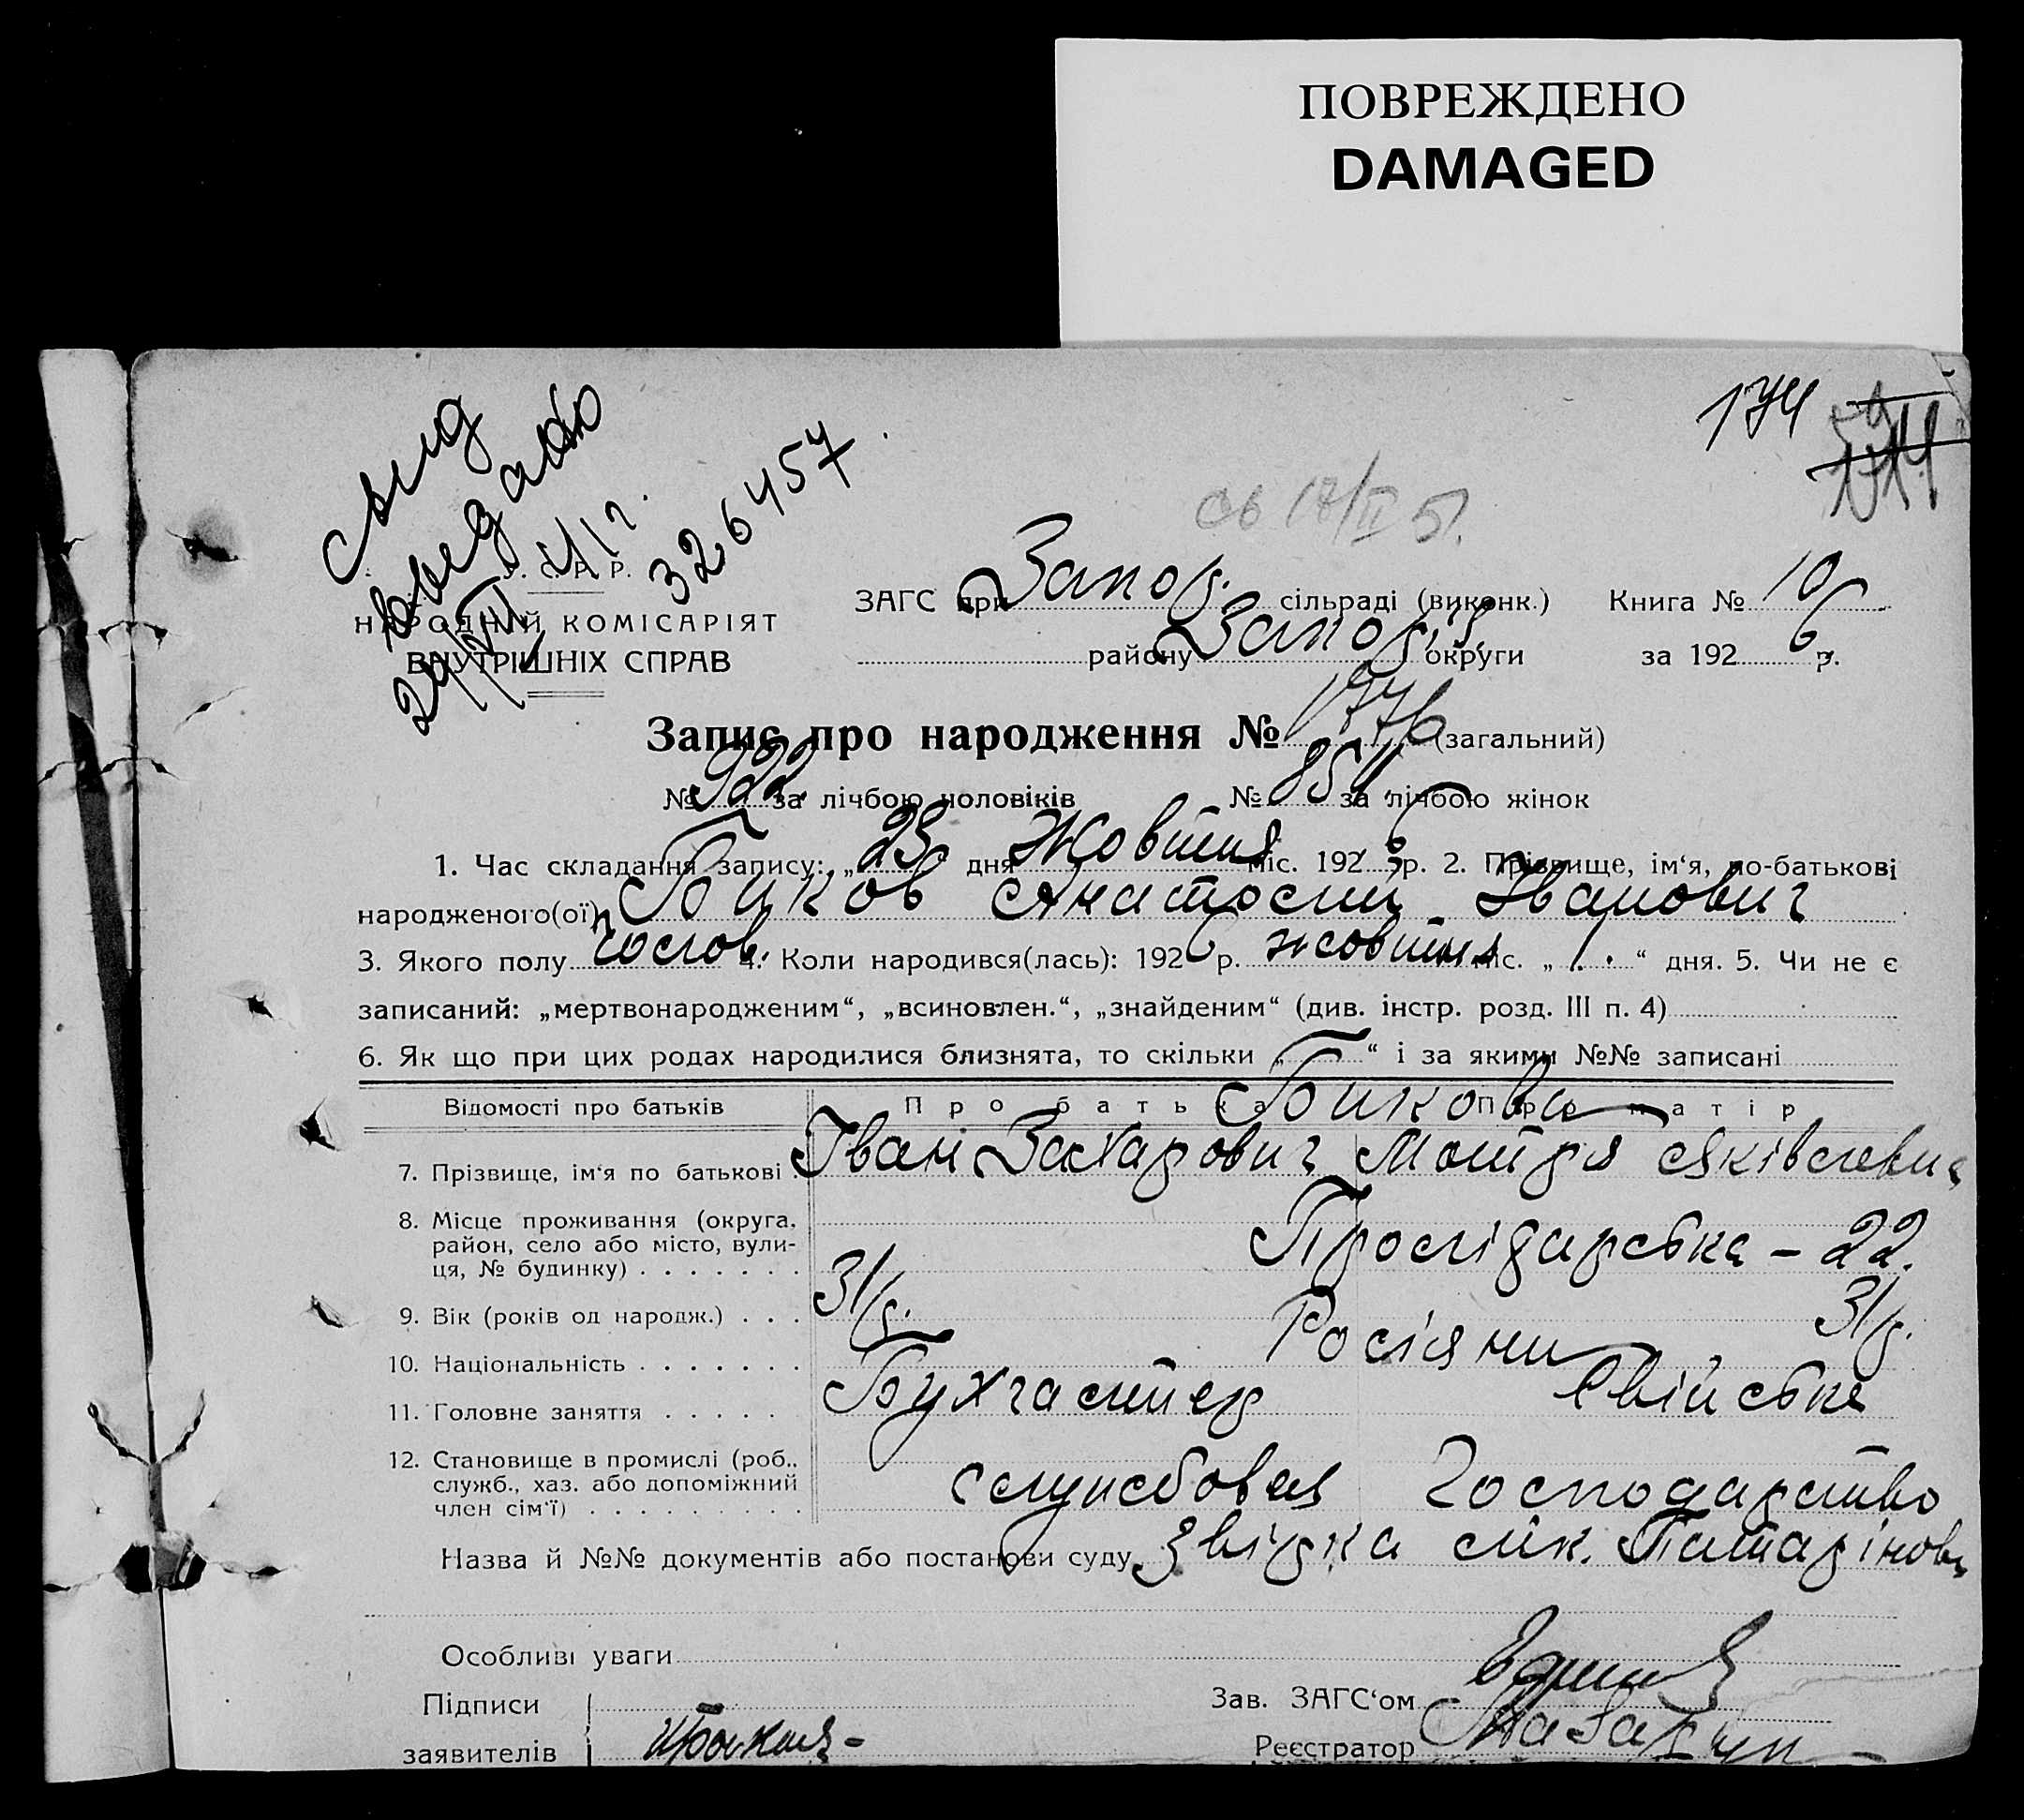 ПОВРЕЖДЕНО
DAMAGED
174
326457
У. С. Р. Р.
НАРОДНИЙ КОМІСАРІЯТ
ВНУТРІШНІХ СПРАВ
ЗАГС при Запор. сільраді (виконк.) Книга № 10
району Запор. округи за 1926 р.
Запис про народження № 1776 (загальний)
№ 922 за лічбою чоловіків № 854 за лічбою жінок
1. Час складання запису: „23“ дня Жовтня міс. 1926 р. 2. Прізвище, ім‘я, по-батькові
народженого(ої) Биков Анатолій Іванович
3. Якого полу чолов. 4. Коли народився(лась): 1926 р. жовтня міс. „1“ дня. 5. Чи не є
записаний: „мертвонародженим“, „всиновлен.“, „знайденим“ (див. інстр. розд. III п. 4)
6. Як що при цих родах народилися близнята, то скільки „ “ і за якими №№ записані
Відомості про батьків Про батька Про матір
Бикови
7. Прізвище, ім‘я по батькові Іван Захарович Мотря Яківлевна
8. Місце проживання (округа, район, село або місто, вули-ця, № будинку) - 22.
9. Вік (років од народж.) 31 р. 31 р.
10. Національність Росіяни
11. Головне заняття Бухгалтер Свійське
12. Становище в промислі (роб., служб., хаз. або допоміжний член сім‘ї) службовец Господарство
Назва й №№ документів або постанови суду
Особливі уваги
Підписи Зав. ЗАГС‘ом
заявителів Реєстратор